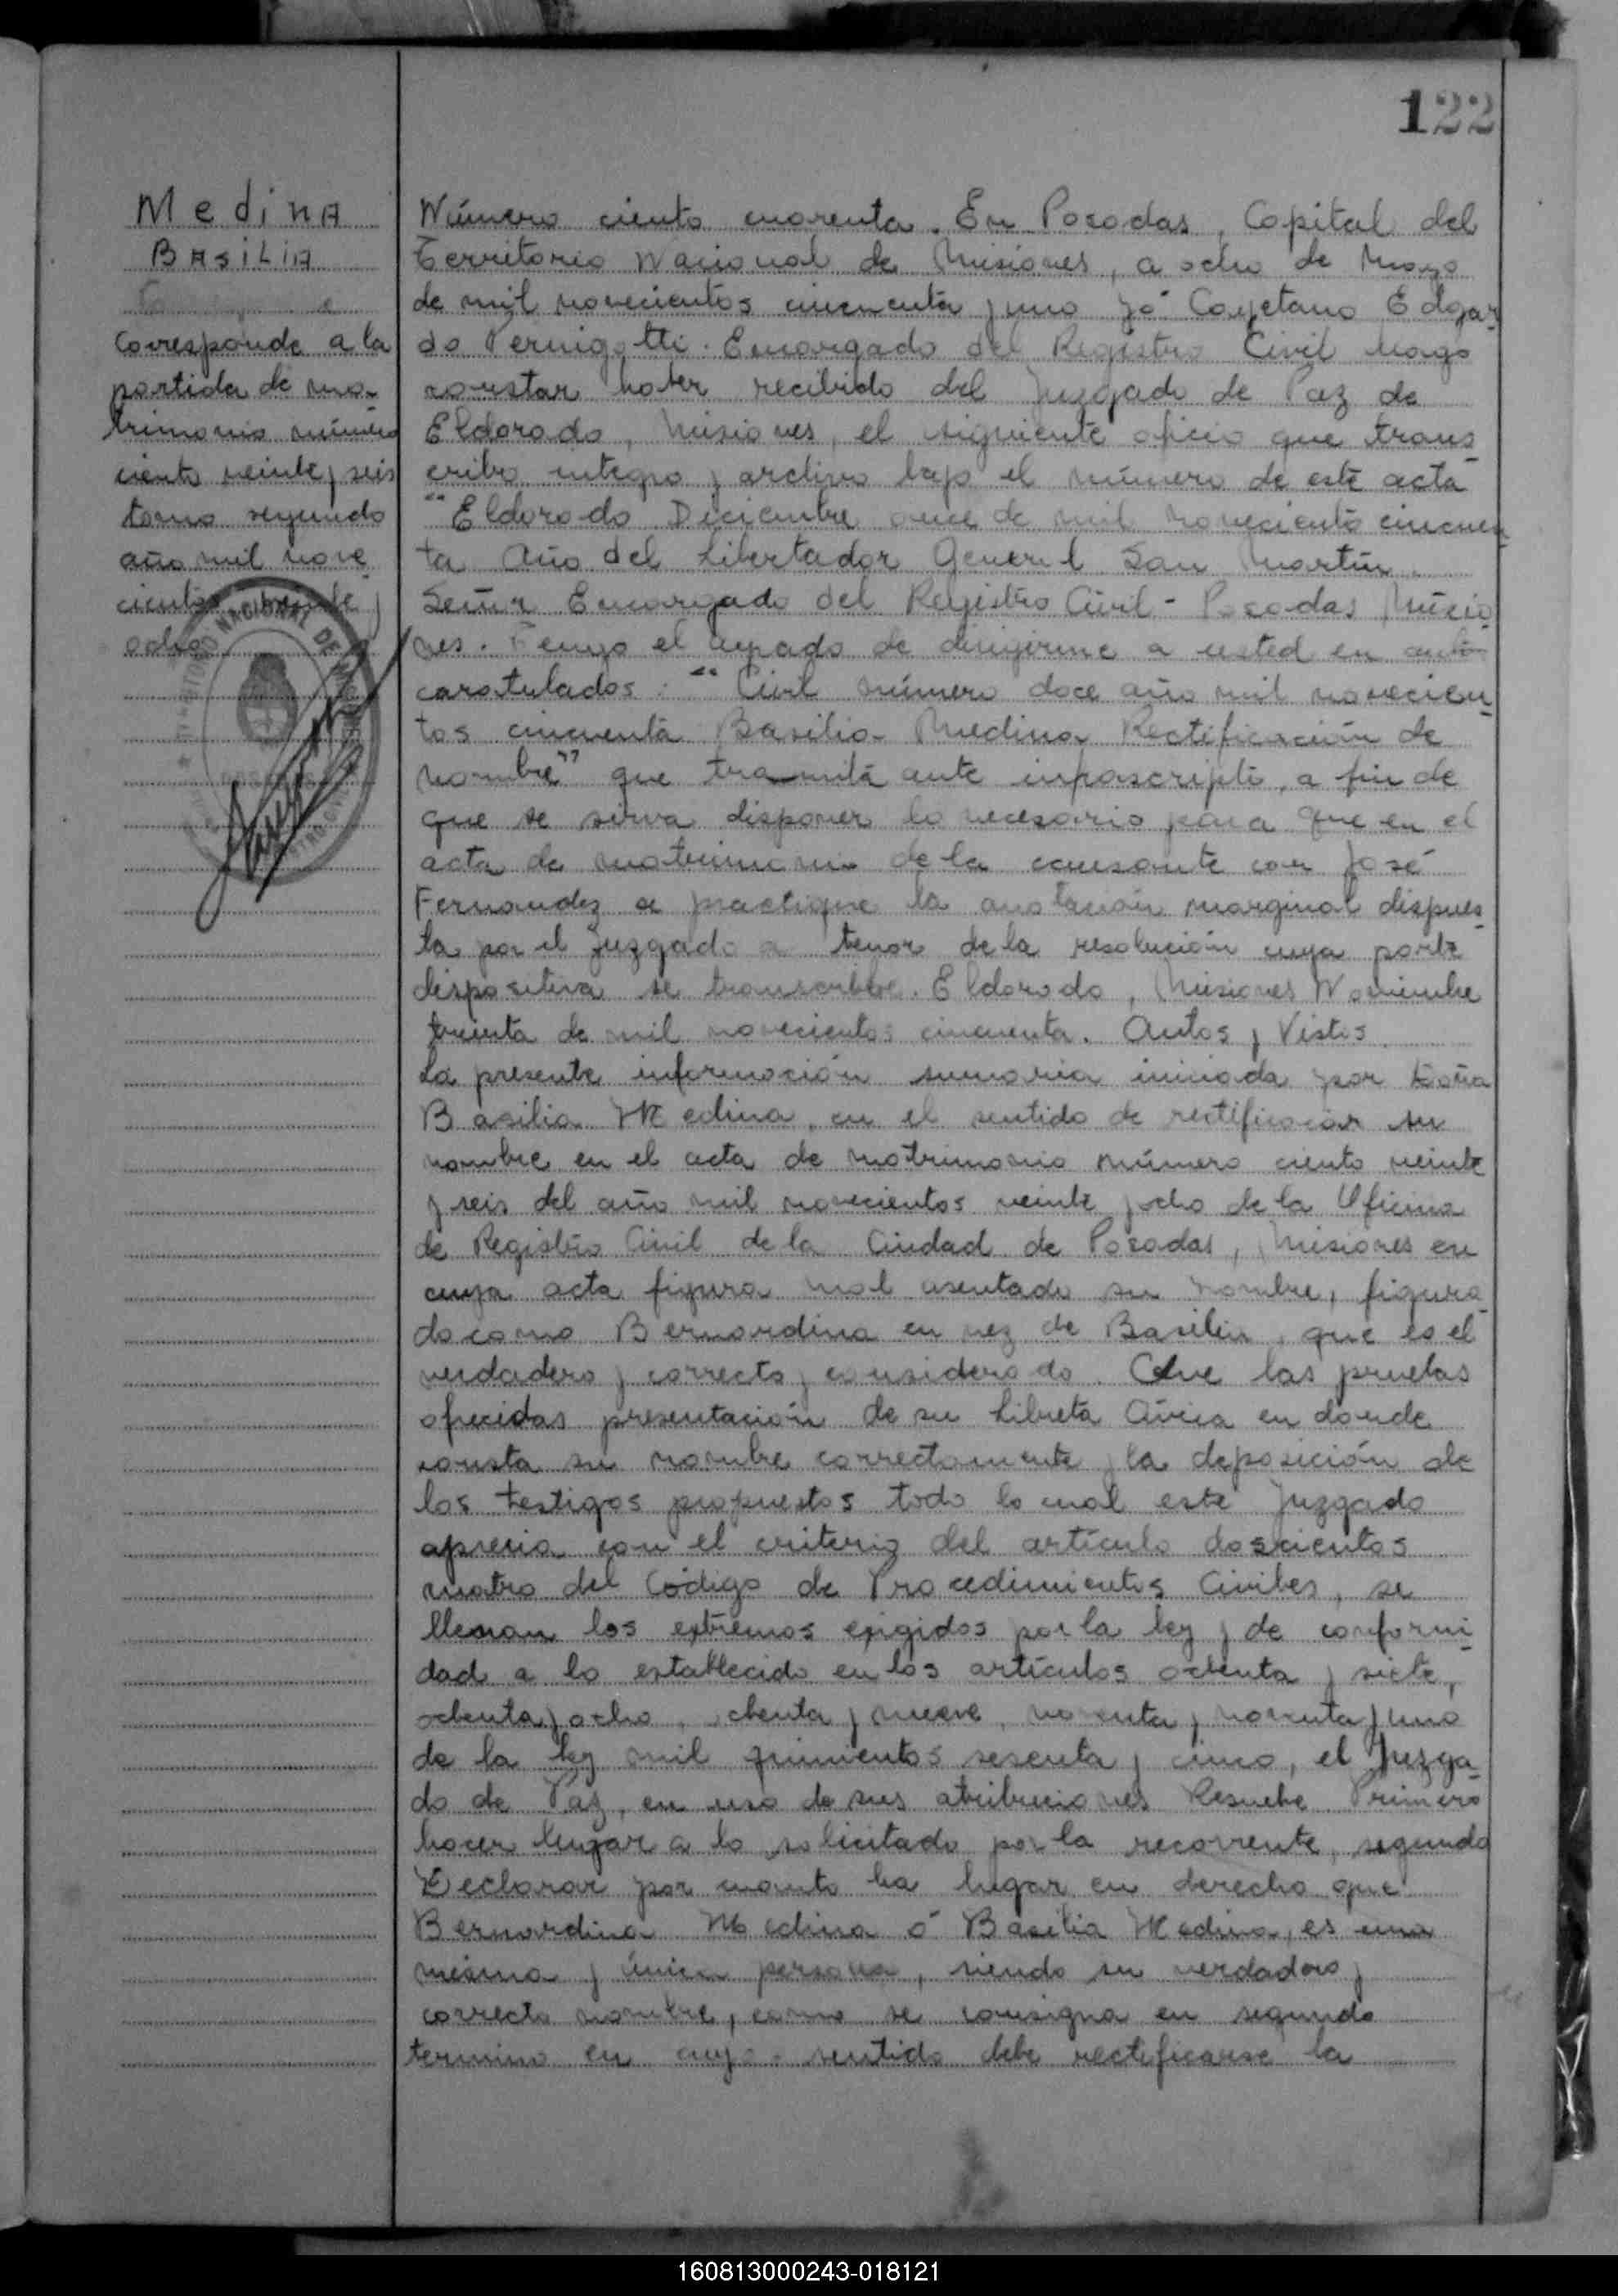 122
Medina
Basilia
Corresponde a la
partida de ma-
trimonio número
ciento veinte y seis
tomo segundo
año mil nove
cientos veinte y
ocho
NACIONAL DE
Número ciento cuarenta. En Posadas, Capital del
Territorio Nacional de Misiones, a ocho de Mayo
de mil novecientos cincuenta y uno yó Cayetano Edgar-
do Pernigotti. Encargado del Registro Civil hago
constar haber recibido del Juzgado de Paz de
Eldorado, Misiones, el siguiente oficio que trans-
cribo integro y archivo bajo el número de este acta
"Eldorado Diciembre once de mil novecientos cincuen-
ta Año del Libertador General San Martín.
Señor Encargado del Registro Civil - Posadas Misio-
nes. Tengo el agrado de dirigirme a usted en autos
caratulados: "Civil número doce año mil novecien-
tos cincuenta Basilia Medina Rectificación de
nombre" que tramita ante infrascripto, a fin de
que se sirva disponer lo necesario para que en el
acta de matrimonio de la causante con José
Fernandez se practique la anotación marginal dispues-
ta por el Juzgado a tenor de la resolución cuya parte
dispositiva se transcribe. Eldorado, Misiones Noviembre
treinta de mil novecientos cincuenta. Autos y Vistos.
La presente información sumaria iniciada por Doña
Basilia Medina, en el sentido de rectificar su
nombre en el acta de matrimonio número ciento veinte
y seis del año mil novecientos veinte y ocho de la Oficina
de Registro Civil de la Ciudad de Posadas, Misiones en
cuya acta figura mal asentado su nombre, figura-
do como Bernardina en vez de Basilia, que es el
verdadero y correcto y considerado. Que las pruebas
ofrecidas presentación de su Libreta Cívica en donde
consta su nombre correctamente y la deposición de
los testigos propuestos todo lo cual este Juzgado
aprecia con el criterio del artículo doscientos
cuatro del Código de Procedimientos Civiles, se
llenan los extremos exigidos por la ley y de conformi-
dad a lo establecido en los artículos ochenta y siete,
ochenta y ocho, ochenta y nueve, noventa y noventa y uno
de la ley mil quinientos sesenta y cinco, el Juzga-
do de Paz, en uso de sus atribuciones Resuelve Primero
hacer lugar a lo solicitado por la recorrente, segundo
Declarar por cuanto ha lugar en derecho que
Bernardina Medina ó Basilia Medina, es una
misma y única persona, siendo su verdadero y
correcto nombre, como se consigna en segundo
termino en cuyo sentido debe rectificarse la
160813000243-018121